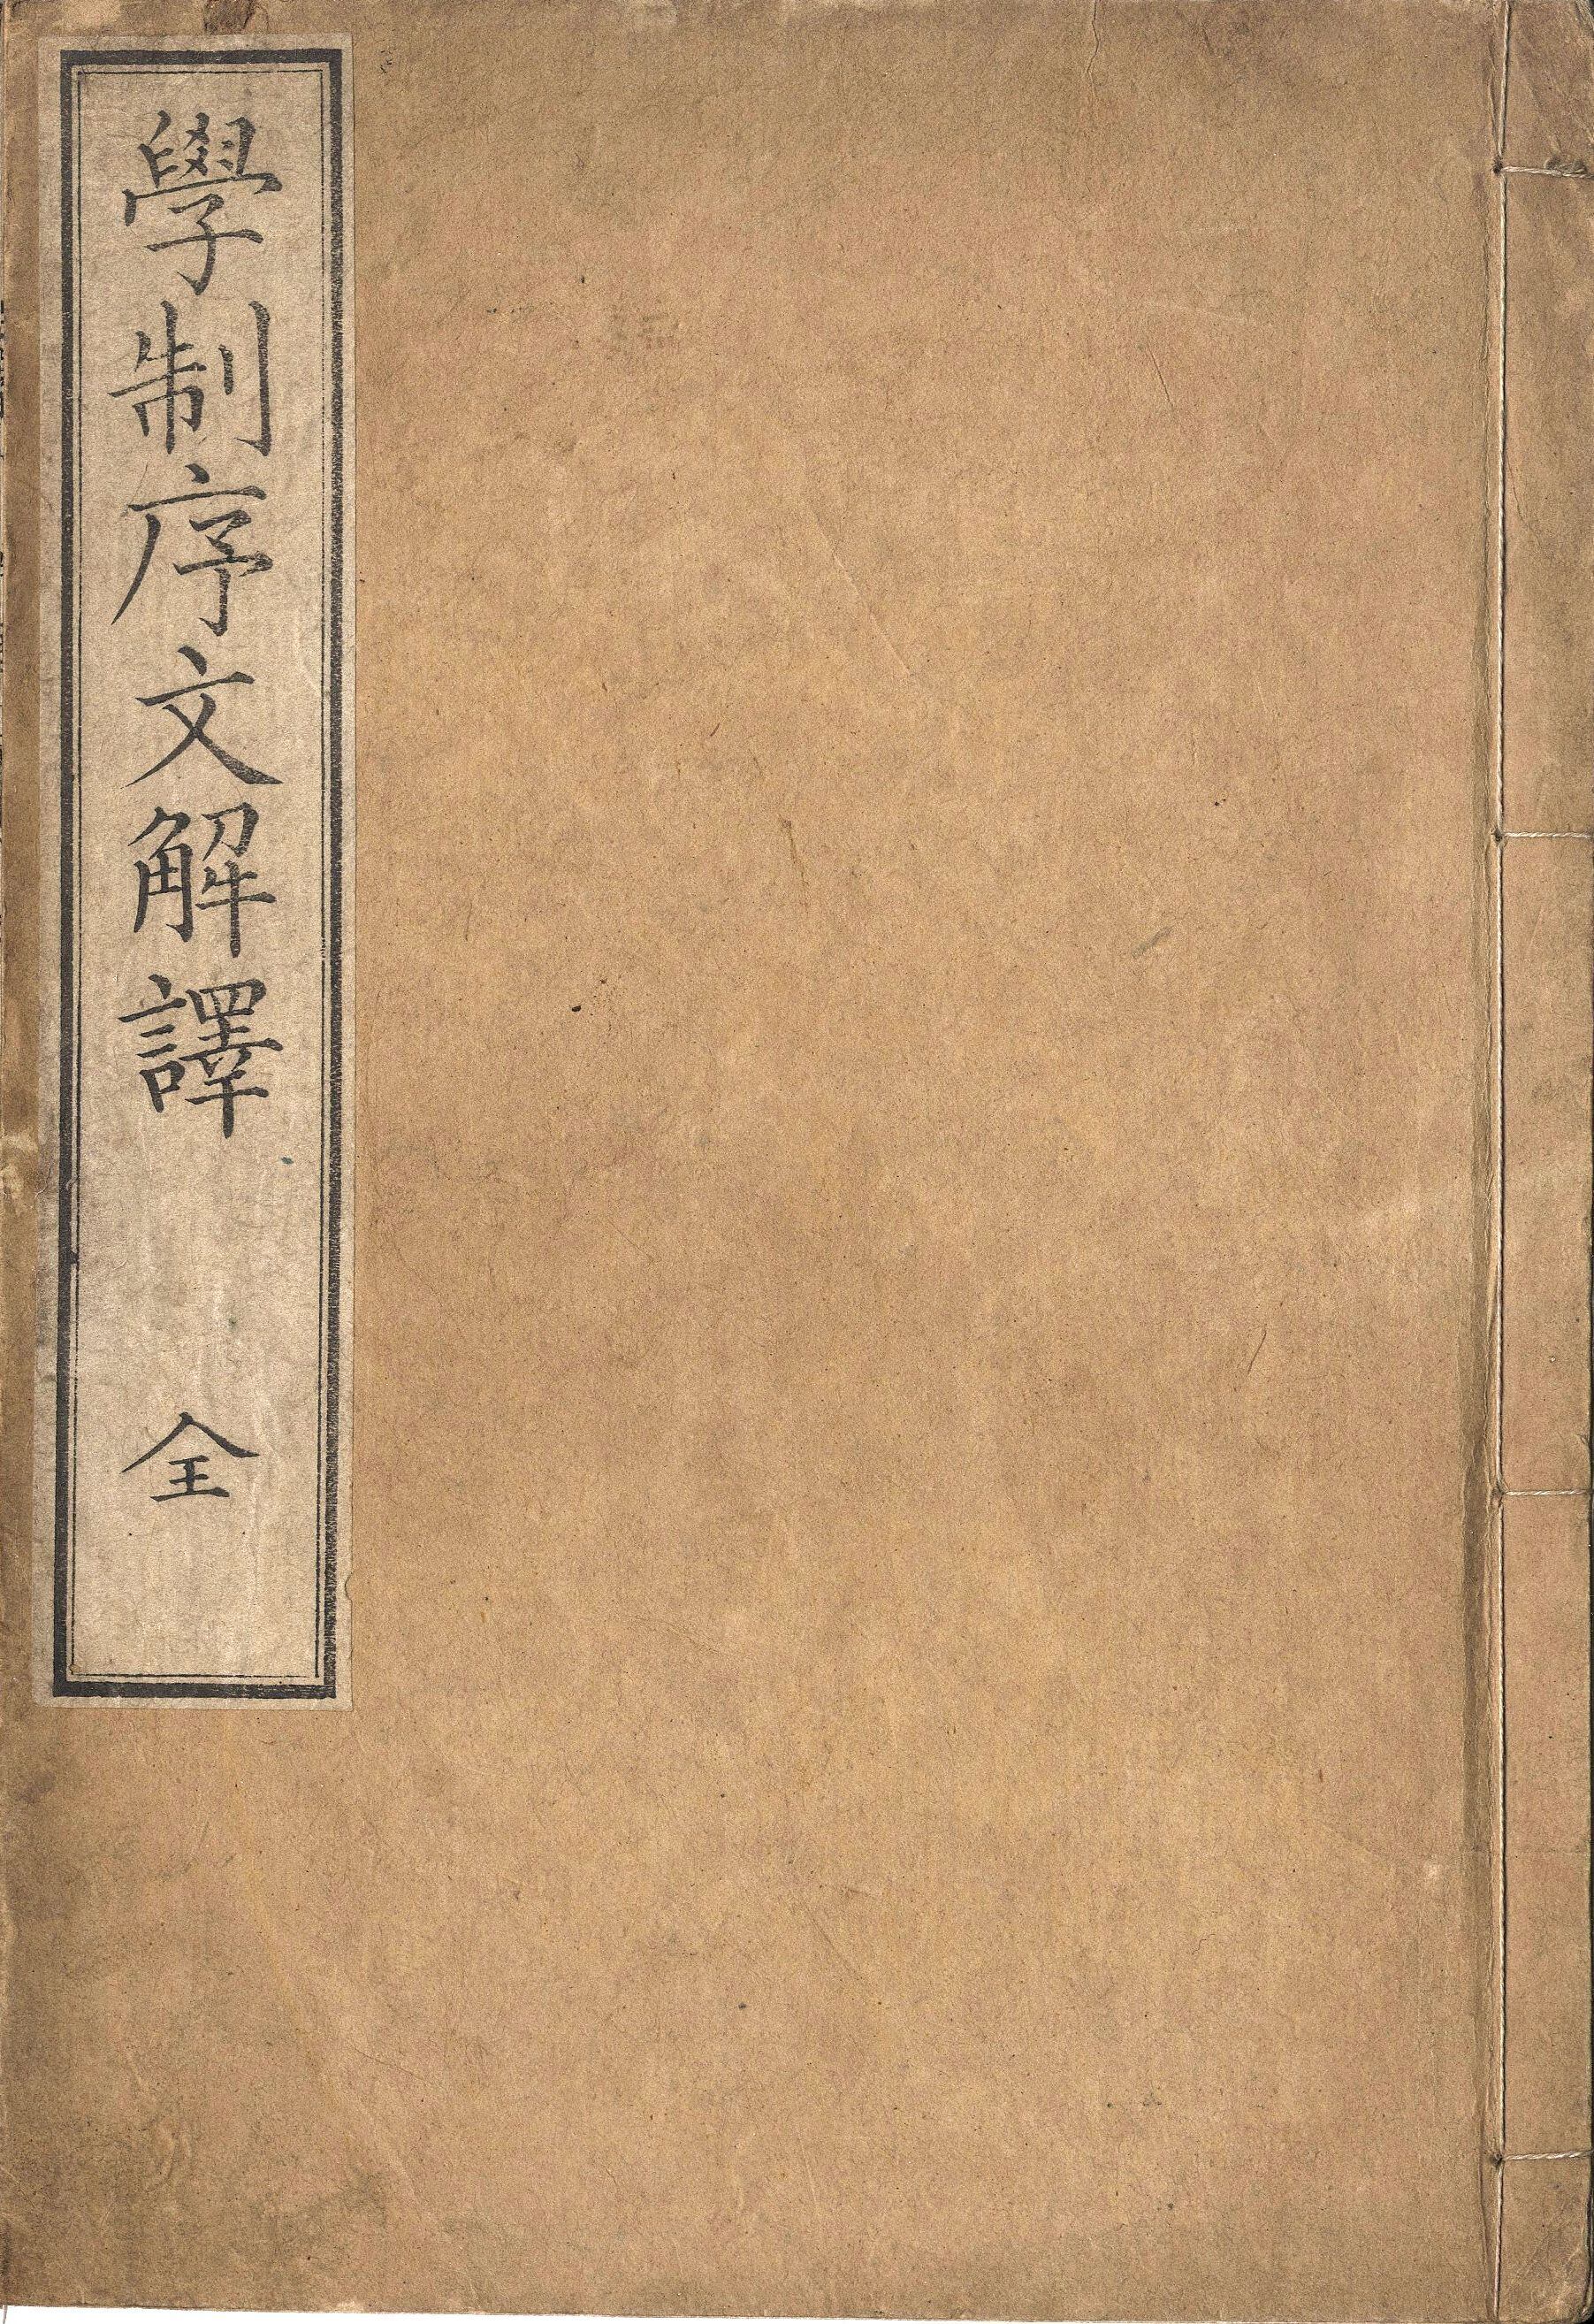 學制序文解譯 全